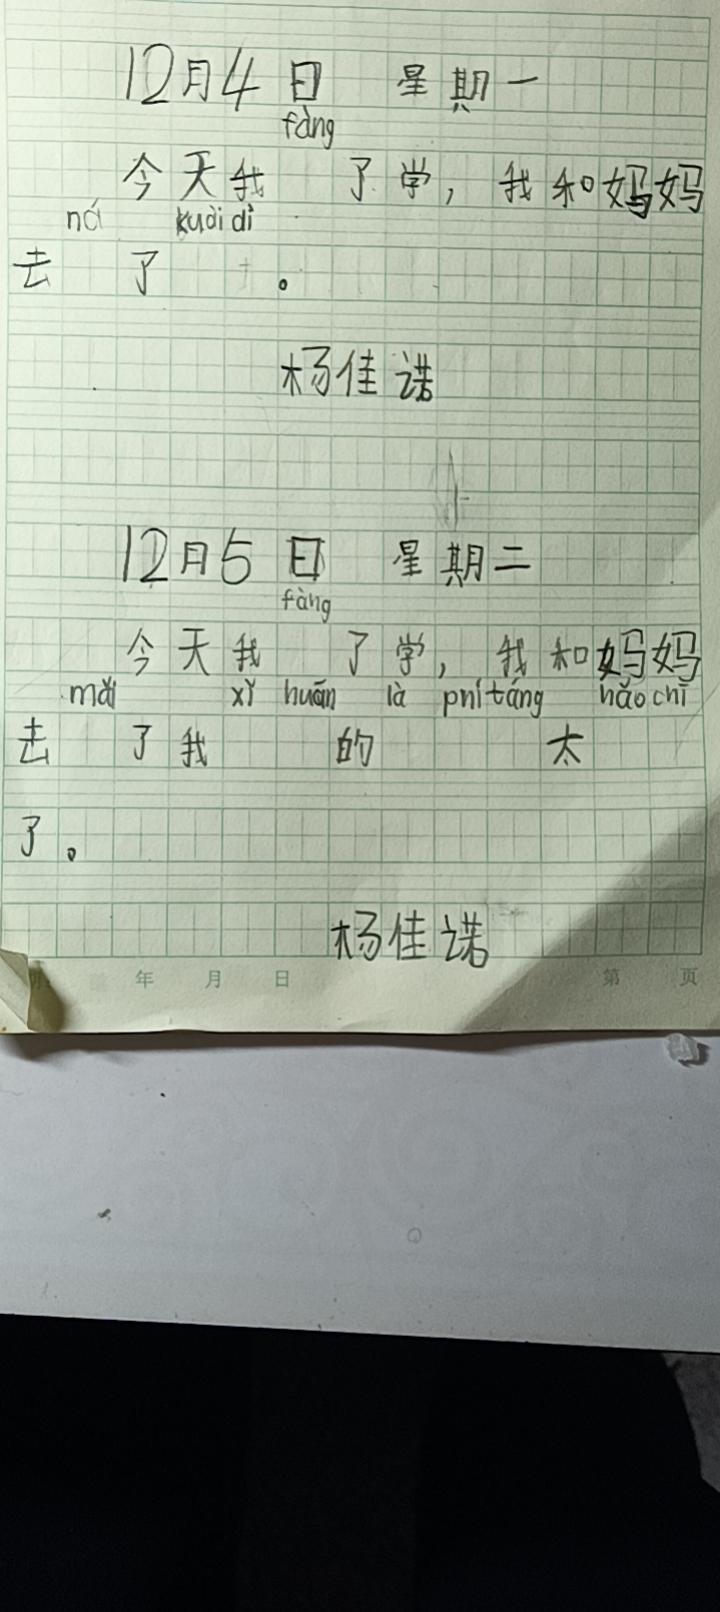 12月4日 星期一
fàng
今天我 了学，我和妈妈
ná kuài dì
去 了 。
杨佳诺
12月5日 星期二
fàng
今天我 了学，我和妈妈
mǎi xǐ huān là pní táng hǎo chī
去 了我 的 太
了。
杨佳诺
年 月 日 第 页